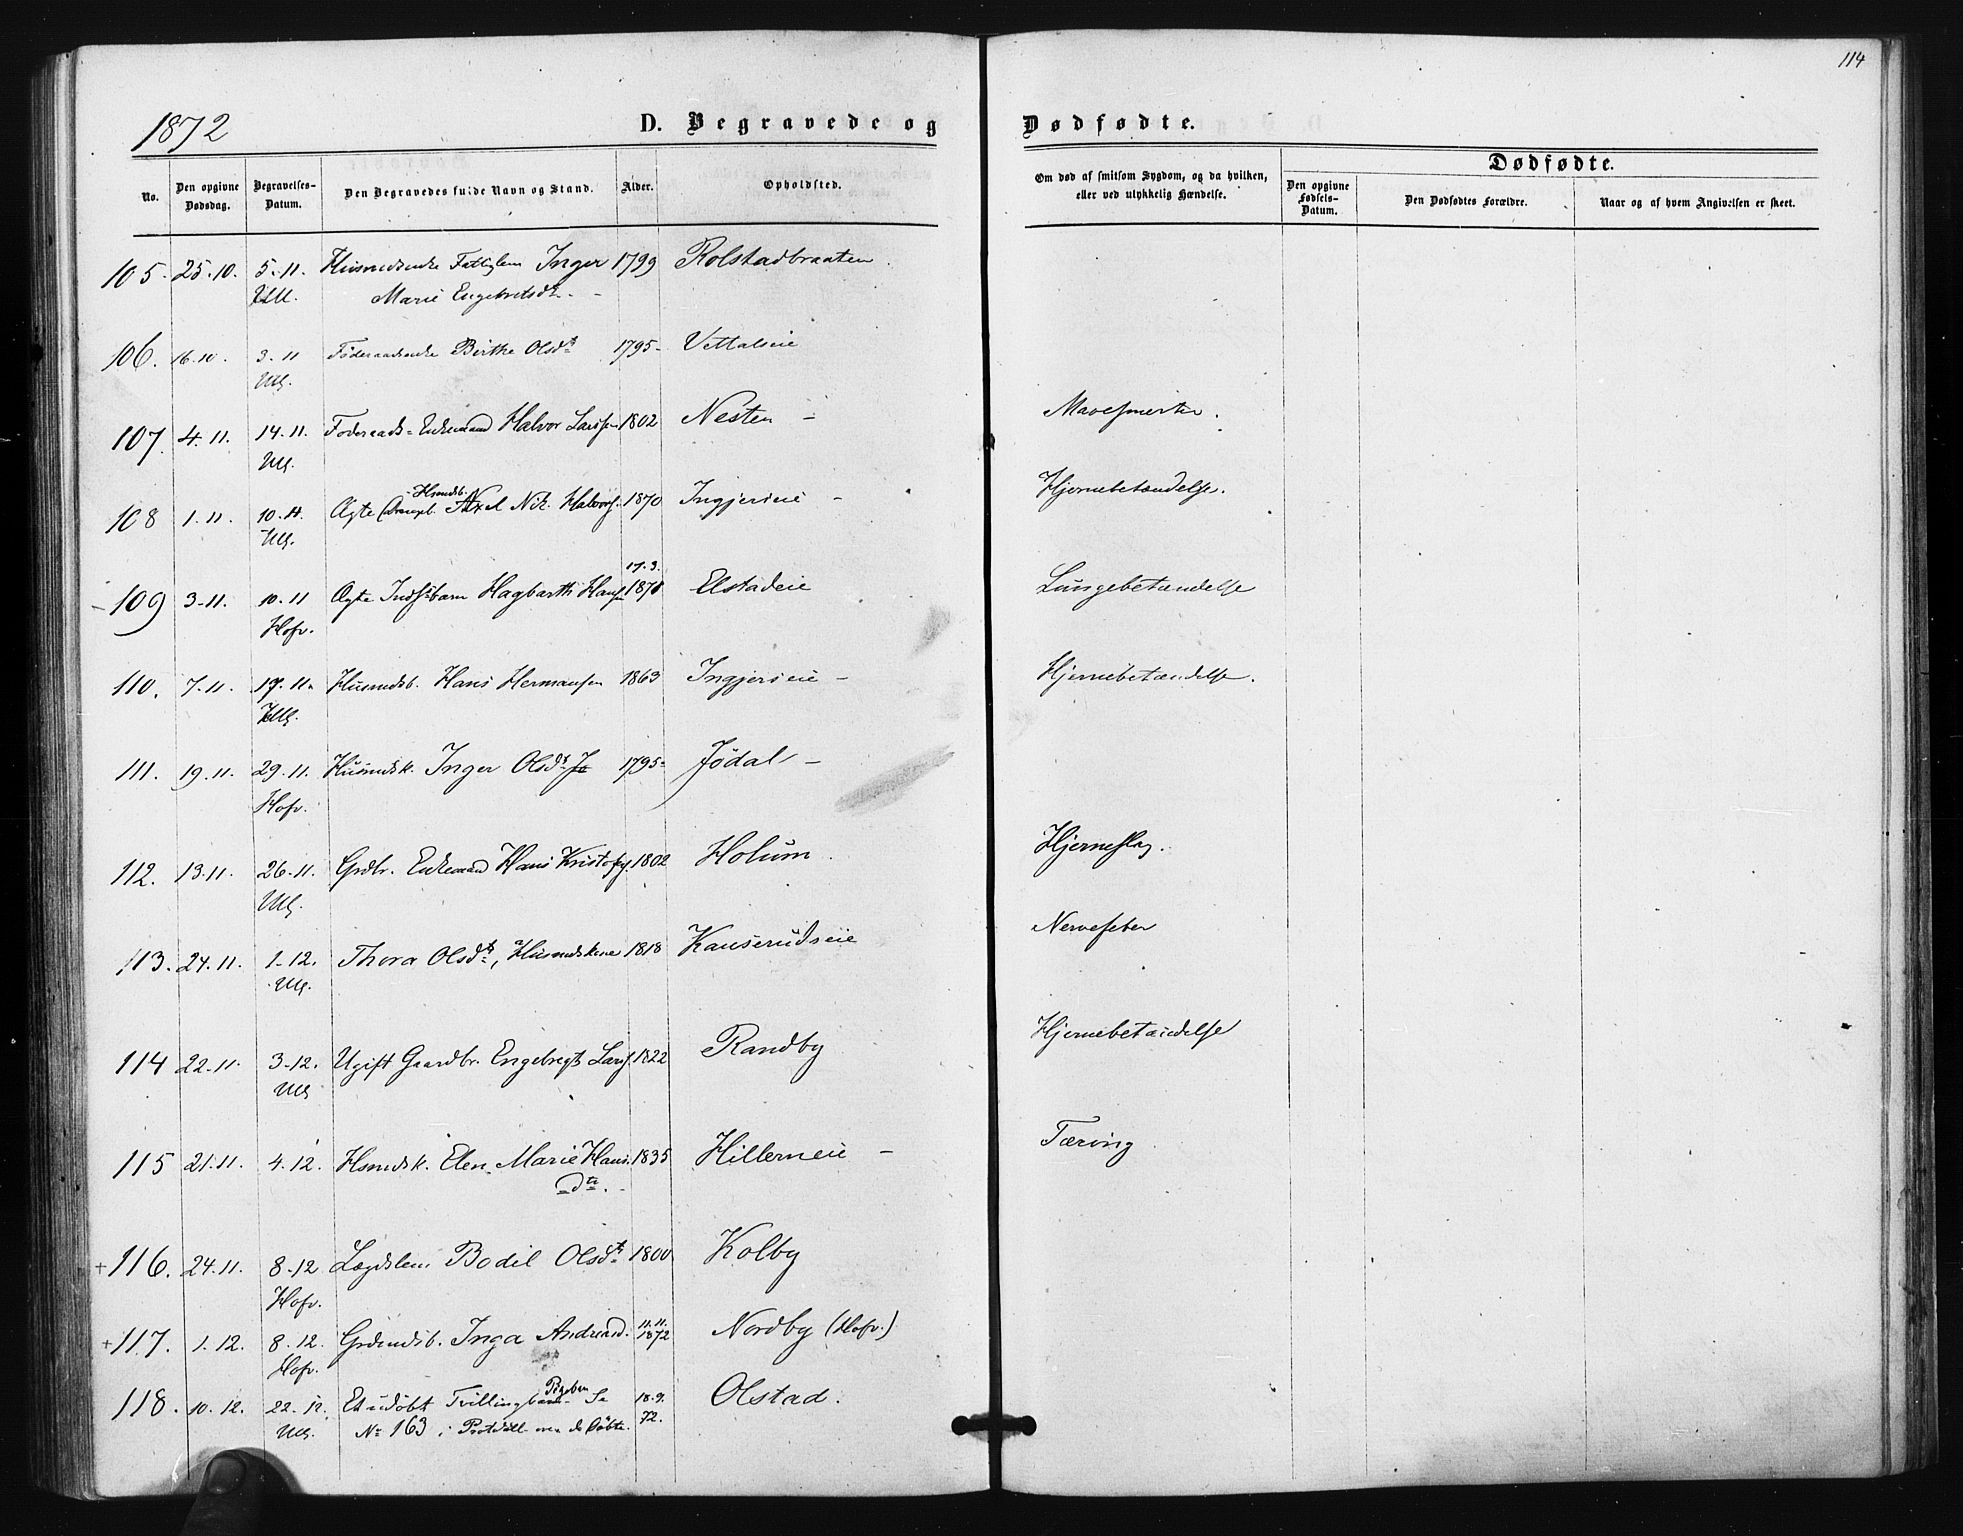 114
1872
D. Begravede og Dødfødte.
Dødfødte.
No.
Den opgivne Dødsdag.
Begravelses-Datum.
Den Begravedes fulde Navn og Stand.
Alder.
Opholdsted.
Om død af smitsom Sygdom, og da hvilken, eller ved ulykkelig Hændelse.
Den opgivne Fødsels-Datum.
Den Dødfødtes Forældre.
Naar og af hvem Angivelsen er skeet.
105. 25.10. 5.11. Husmdsenke Fattiglem Inger 1799 Rolstadbraaten
Ull. Marie Engebretsdtr.
106. 16.10. 3.11 Føderaadsenke Birthe Olsdtr 1795 Vettaleie
Ull.
107. 4.11. 14.11. Føderaads-Enkemand Halvor Larssen 1802 Nesten - Mavesmerter.
Ull.
Husmdsb.
108 1.11. 10.11. Ægte Axel Nik. Halvors. 1870 Ingjerseie - Hjernebetændelse.
Ull.
17.3.
109 3.11. 10.11 Ægte Indstbarn Hagbarth Hansen 1871 Elstadeie Lungebetændelse
Hofv.
110. 7.11. 17.11. Husmdsb. Hans Hermansen 1863 Ingjerseie - Hjernebetændelse.
Ull.
111. 19.11. 29.11. Husmdsk. Inger Olsdtr 1795 Jødal -
Hofv.
112. 13.11. 26.11. Grdbr. Enkemand Hans Kristofs. 1802 Holum. Hjerneslag.
Ull.
113. 24.11. 1.12. Thora Olsdtr, Husmdskone 1818 Kauserudseie Nervefeber
Ull.
114 22.11. 3.12. Ugift Gaardbr. Engebregt Lars. 1822 Randby Hjernebetændelse
Ull
115 21.11. 4.12. Hsmdsk. Elen Marie Hans- 1835 Hillerneie - Tæring
dtr.
+116. 24.11. 8.12 Lægdslem Bodil Olsdtr 1800 Kolby
Hofv.
11.11.
+117. 1.12. 8.12. Grdmdsb. Inga Andreasd. 1872 Nordby (Hofv.)
Hofv.
Pigebarn
118. 10.12. 22.12. Et udøbt Tvillingbarn Se 18.9. Olstad.
Ull. No 163 i Protokoll over de Døbte. 72.